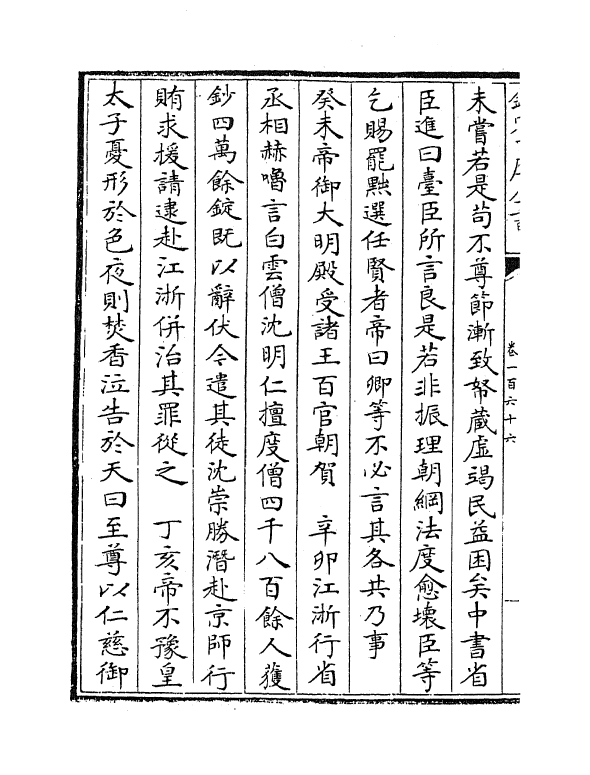 卷一百六十六
未嘗若是苟不尊節漸致帑藏虛竭民益困矣中書省
臣進曰臺臣所言良是若非振理朝綱法度愈壞臣等
乞賜罷黜選任賢者帝曰卿等不必言其各共乃事
癸未帝御大明殿受諸王百官朝賀　辛卯江浙行省
丞相赫嚕言白雲僧沈明仁擅度僧四千八百餘人獲
鈔四萬餘錠既以辭伏今遣其徒沈崇勝潛赴京師行
賄求援請逮赴江浙併治其罪從之　丁亥帝不豫皇
太子憂形於色夜則焚香泣告於天曰至尊以仁慈御